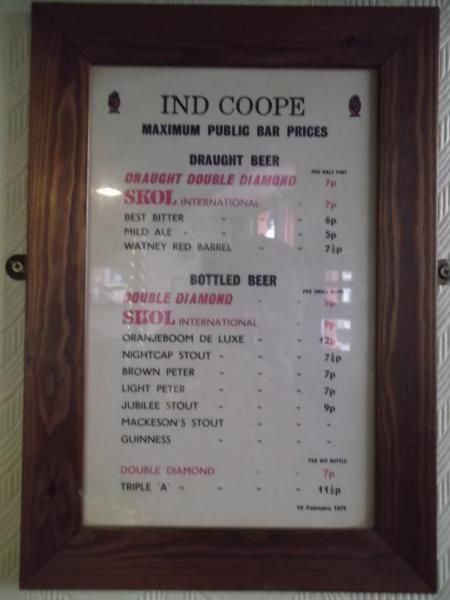 IND COOPE
MAXIMUM PUBLIC BAR PRICES
DRAUGHT BEER
PER HALF PINT
DRAUGHT DOUBLE DIAMOND 7p
SKOL INTERNATIONAL - - 7p
BEST BITTER - - - 6p
MILD ALE - - - - 5p
WATNEY RED BARREL - - 7½p
BOTTLED BEER
PER SMALL
DOUBLE DIAMOND - - 9p
SKOL INTERNATIONAL - - 9p
ORANJEBOOM DE LUXE - - 12p
NIGHTCAP STOUT - - - - 7½p
BROWN PETER - - - 7p
LIGHT PETER - - - 7p
JUBILEE STOUT - - - 9p
MACKESON'S STOUT - - - -
GUINNESS - - - -
PER NIP BOTTLE
DOUBLE DIAMOND - - 7p
TRIPLE 'A' - - - - 11½p
15 February 1971